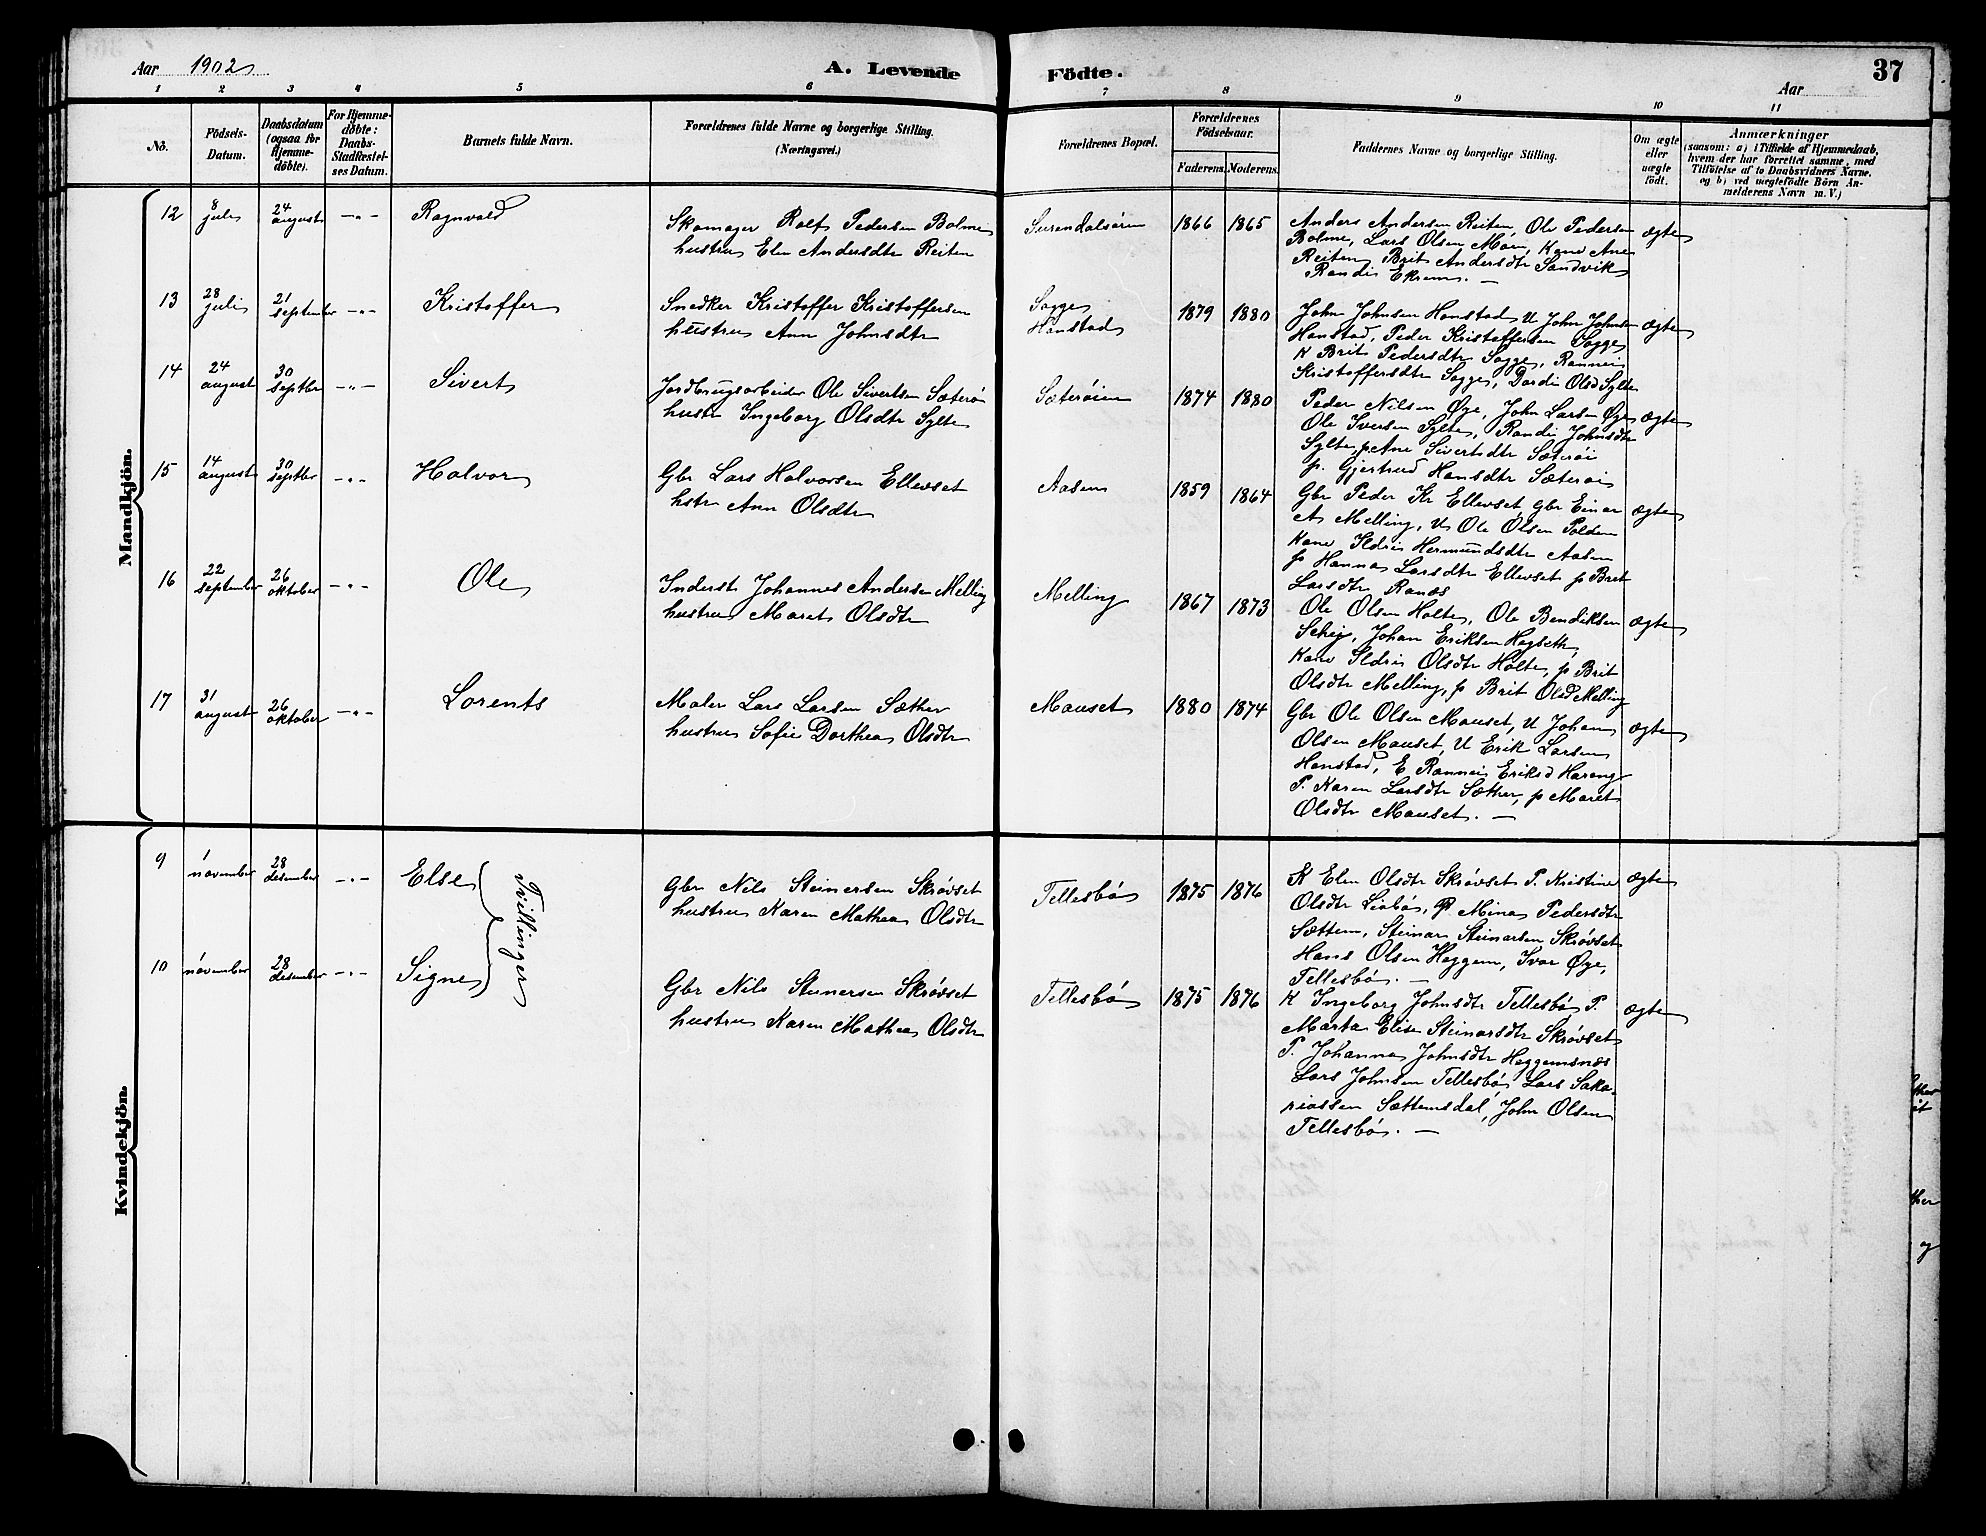 Aar 1902 A. Levende Födte. Aar 37
1 2 3 4 5 6 7 8 9 10 11
Nö.
Födsels-Datum.
Daabsdatum (ogsaa for Hjemme-döbte).
For Hjemme-döbte: Daabs-Stadfæstel-ses Datum.
Barnets fulde Navn.
Forældrenes fulde Navne og borgerlige Stilling. (Næringsvei.)
Forældrenes Bopæl.
Forældrenes Födselsaar.
Faderens. Moderens.
Faddernes Navne og borgerlige Stilling.
Om ægte eller uægte födt.
Anmærkninger
(saasom: a) i Tilfælde af Hjemmedaab,
hvem der har forrettet samme, med
Tilföielse af to Daabsvidners Navne,
og b) ved uægtefödte Börn An-
melderens Navn m. V.)
Mandkjön.
12 8 juli 24 august -"- Ragnvald
Skomager Rolf Pedersen Bolme
hustru Elen Andersdtr Reiten
Surendalsören 1866 1865
Anders Andersen Reiten, Ole Pedersen
Bolme, Lars Olsen Moen, Kone Ane
Reiten, Brit Andersdtr Sandvik
Randi Ekren. —
ægte
13 28 juli 21 september -"- Kristoffer
Snedker Kristoffer Kristoffersen
hustru Ann Johnsdtr
Sogge
Honstad 1879 1880
John Johnsen Honstad U John Johnsen
Honstad, Peder Kristoffersen Sogge
K Brit Pedersdtr Sogge, Rannei
Kristoffersdtr Sogge, Dordi Olsd Sylte
ægte
14 24 august 30 septbr -"- Sivert
Jordbrugsarbeider Ole Sivertsen Sæterö
hustr Ingeborg Olsdtr Sylte
Sæteröien 1874 1880
Peder Nilsen Øye, John Larsen Øye
Ole Iversen Sylte, Randi Johnsdtr
Sylte, p Ane Sivertsdtr Sæteröi
p. Gjertrud Hansdtr Sæteröi
ægte
15 14 august 30 septbr -"- Halvor
Gbr Lars Halvorsen Ellevset
hstr Ann Olsdtr
Aasen 1859 1864
Gbr Peder Kr Ellevset Gbr Einar
A Melling, U Ole Olsen Polden
Kone Ildri Hermundsdtr Aasen
p Hanna Larsdtr Ellevset p Brit
Larsdtr Ranæs
ægte
16 22 september 26 oktober -"- Ole
Inderst Johannes Andersen Melling
hustru Maret Olsdtr
Melling 1867 1873
Ole Olsen Holte, Ole Bendiksen
Schei, Johan Eriksen Hegseth
Kone Ildri Olsdtr Holte, p Brit
Olsdtr Melling, p Brit Olsd Melling
ægte
17 31 august 26 oktober -"- Lorents
Maler Lars Larsen Sæther
hustru Sofie Dorthea Olsdtr
Mauset 1880 1874
Gbr Ole Olsen Mauset, U Johan
Olsen Mauset, U Erik Larsen
Honstad, E Rannei Eriksd Harang
P. Karen Larsdtr Sæther, p Maret
Olsdtr Mauset. —
ægte
Kvindekjön.
9 1 november 28 desember -"- Else
Tvillinger
Gbr Nils Steinersen Skrövset
hustru Karen Mathea Olsdtr
Tellesbö 1875 1876
K Elen Olsdtr Skrövset P. Kristine
Olsdtr Liabö, P Mina Pedersdtr
Sættem, Steinar Steinarsen Skrövset
Hans Olsen Heggem, Ivar Øye,
Tellesbö. —
ægte
10 1 november 28 desember -"- Signe
Gbr Nils Steinersen Skrövset
hustru Karen Mathea Olsdtr
Tellesbö 1875 1876
K Ingeborg Johnsdtr Tellesbö P.
Marta Elise Steinarsdtr Skrövset
P. Johanna Johnsdtr Heggemsnæs
Lars Johnsen Tellesbö, Lars Saka-
riassen Sættemsdal, John Olsen
Tellesbö. —
ægte